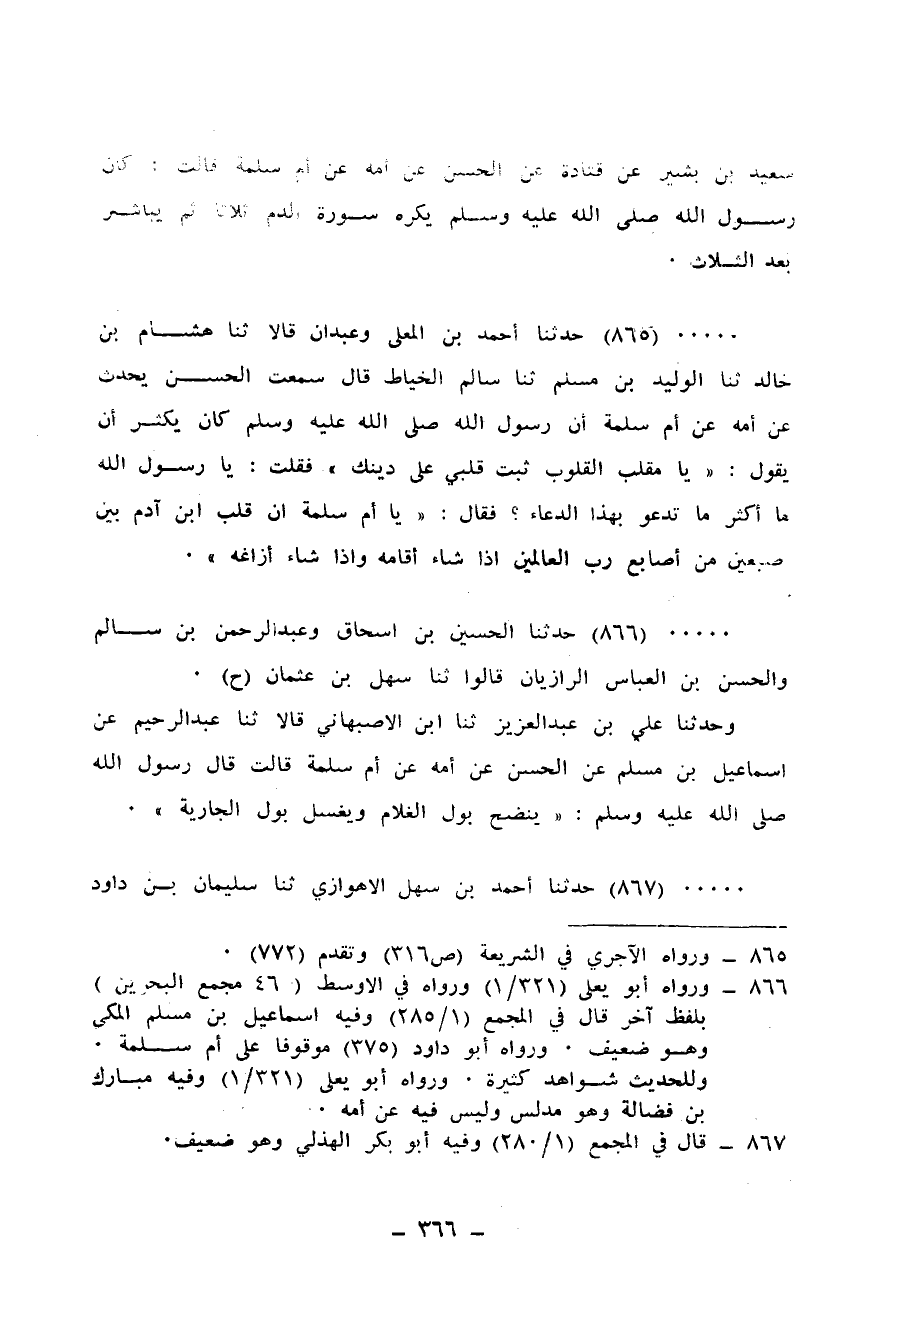 سعيد بن بشير عن قتادة عن الحسن عن أمه عن أم سلمة قالت : كان
رســـول الله صلى الله عليه وســلم يكره ســورة الدم ثلاثا ثم يباشــر
بعد الثــلاث ٠
٠٠٠٠٠ (٨٦٥) حدثنا أحمد بن المعلى وعبدان قالا ثنا هشــــام بن
خالد ثنا الوليد بن مسلم ثنا سالم الخياط قال سمعت الحســـن يحدث
عن أمه عن أم سلمة أن رسول الله صلى الله عليه وسلم كان يكثــر أن
يقول : « يا مقلب القلوب ثبت قلبي على دينك » فقلت : يا رســول الله
ما أكثر ما تدعو بهذا الدعاء ؟ فقال : « يا أم سلمة ان قلب ابن آدم بين
صبعين من أصابع رب العالمين اذا شاء أقامه واذا شاء أزاغه » ٠
٠٠٠٠٠ (٨٦٦) حدثنا الحسين بن اسحاق وعبدالرحمن بن ســـالم
والحسن بن العباس الرازيان قالوا ثنا سهل بن عثمان (ح) ٠
وحدثنا علي بن عبدالعزيز ثنا ابن الاصبهاني قالا ثنا عبدالرحيم عن
اسماعيل بن مسلم عن الحسن عن أمه عن أم سلمة قالت قال رسول الله
صلى الله عليه وسلم : « ينضح بول الغلام ويغسل بول الجارية » ٠
٠٠٠٠٠ (٨٦٧) حدثنا أحمد بن سهل الاهوازي ثنا سليمان بــن داود
٨٦٥ ــ ورواه الآجري في الشريعة (ص٣١٦) وتقدم (٧٧٢) ٠
٨٦٦ ــ ورواه أبو يعلى (١/٣٢١) ورواه في الاوسط ( ٤٦ مجمع البحرين )
بلفظ آخر قال في المجمع (٢٨٥/١) وفيه اسماعيل بن مسلم المكي
وهــو ضعيف ٠ ورواه أبو داود (٣٧٥) موقوفا على أم ســـلمة ٠
وللحديث شــواهد كثيرة ٠ ورواه أبو يعلى (١/٣٢١) وفيه مبــارك
بن فضالة وهو مدلس وليس فيه عن أمه ٠
٨٦٧ ــ قال في المجمع (٢٨٠/١) وفيه أبو بكر الهذلي وهو ضعيف٠
ــ ٣٦٦ ــ